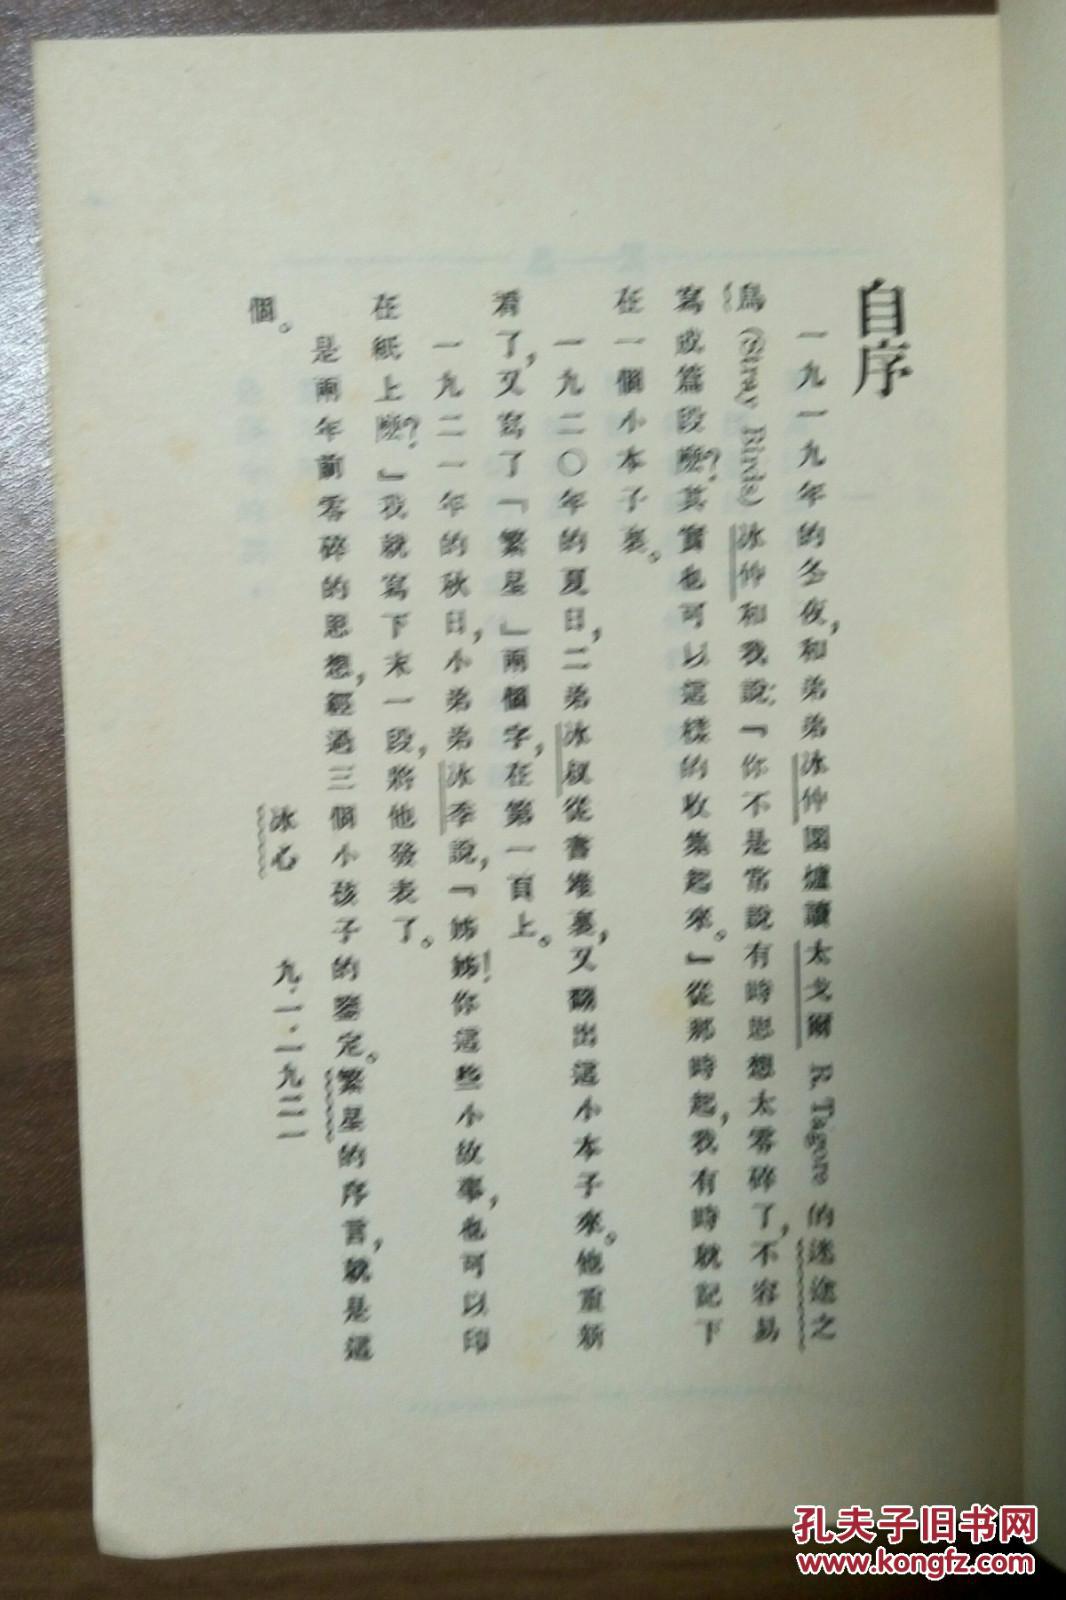 自序
一九一九年的冬夜，和弟弟冰仲圍爐讀太戈爾 R. Tagore 的迷途之
鳥 (Stray Birds) 冰仲和我說：『你不是常說有時思想太零碎了，不容易
寫成篇段麼？其實也可以這樣的收集起來。』從那時起，我有時就記下
在一個小本子裏。
一九二〇年的夏日，二弟冰叔從書堆裏，又翻出這小本子來。他重新
看了，又寫了『繁星』兩個字，在第一頁上。
一九二一年的秋日，小弟弟冰季說，『姊姊！你這些小故事，也可以印
在紙上麼？』我就寫下末一段，將他發表了。
是兩年前零碎的思想，經過三個小孩子的鑒定。繁星的序言，就是這
個。
冰心
九，一，一九二一
孔夫子旧书网
www.kongfz.com